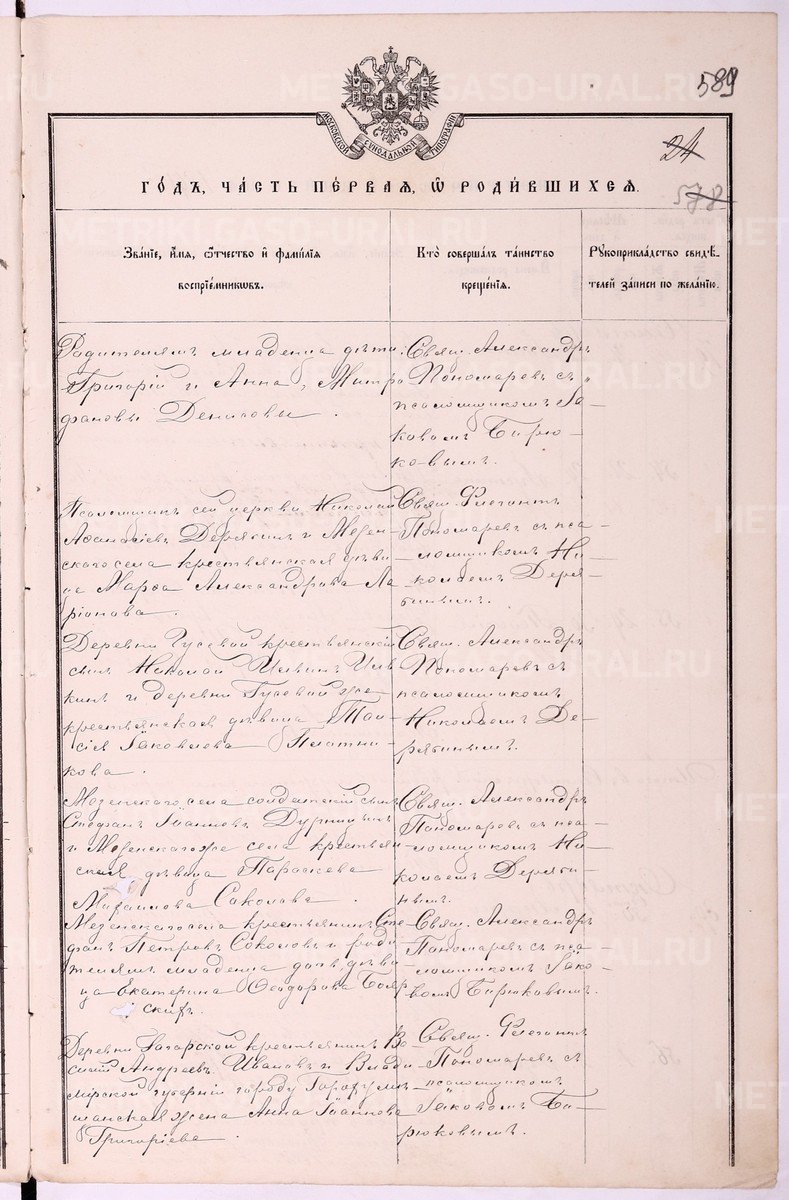 589
МОСКОВСКОЙ СѴНОДАЛЬНОЙ ТИПОГРАФІИ
24
578
ГОДЪ, ЧАСТЬ ПЕРВАЯ, Ѡ РОДИВШИХСЯ.
Званіе, имя, ѿчество и фамилія
воспріемниковъ.
Кто совершалъ таинство
крещенія.
Рукоприкладство свидѣ-
телей записи по желанію.
Родителямъ младенца дѣти
Григорій и Анна, Митро
фановы Денисовы.
Свящ. Александръ
Пономаревъ съ
псаломщикомъ Іа
ковомъ Бирю-
ковымъ.
Псаломщикъ сей церкви Николай
Аѳанасіевъ Дерябинъ и Мезен-
скаго села крестьянская дѣви
ца Марѳа Александрова Ла
ріонова.
Свящ. Флегонтъ
Пономаревъ съ пса-
ломщикомъ Ни-
колаемъ Деря-
бинымъ.
Деревни Гусевой крестьянскій
сынъ Николай Ильинъ Иль
инъ и деревни Гусевой же
крестьянская дѣвица Таи-
сія Іаковлева Плотни-
кова.
Свящ. Александръ
Пономаревъ съ
псаломщикомъ
Николаемъ Де-
рябинымъ.
Мезенскаго села солдатскій сынъ
Стефанъ Іоанновъ
и Мезенскаго же села крестьян
ская дѣвица Параскева
Михаилова Соколова.
Свящ. Александръ
Пономаревъ съ пса-
ломщикомъ Ни-
колаемъ Деряби-
нымъ.
Мезенскаго села крестьянинъ Сте
фанъ Петровъ Соколовъ и роди
телямъ младенца дочь дѣви
ца Екатерина Ѳеодорова Бояр
скихъ.
Свящ. Александръ
Пономаревъ съ пса-
ломщикомъ Іако-
вомъ Бирюковымъ.
Деревни Гагарской крестьянинъ Ва
силій Андреевъ Ивановъ и Влади
мірской губерніи городу
жена Анна Іоаннова
Григоріева.
Свящ. Флегонтъ
Пономаревъ съ
псаломщикомъ
Іаковомъ Би-
рюковымъ.
METRIKI.GASO-URAL.RU